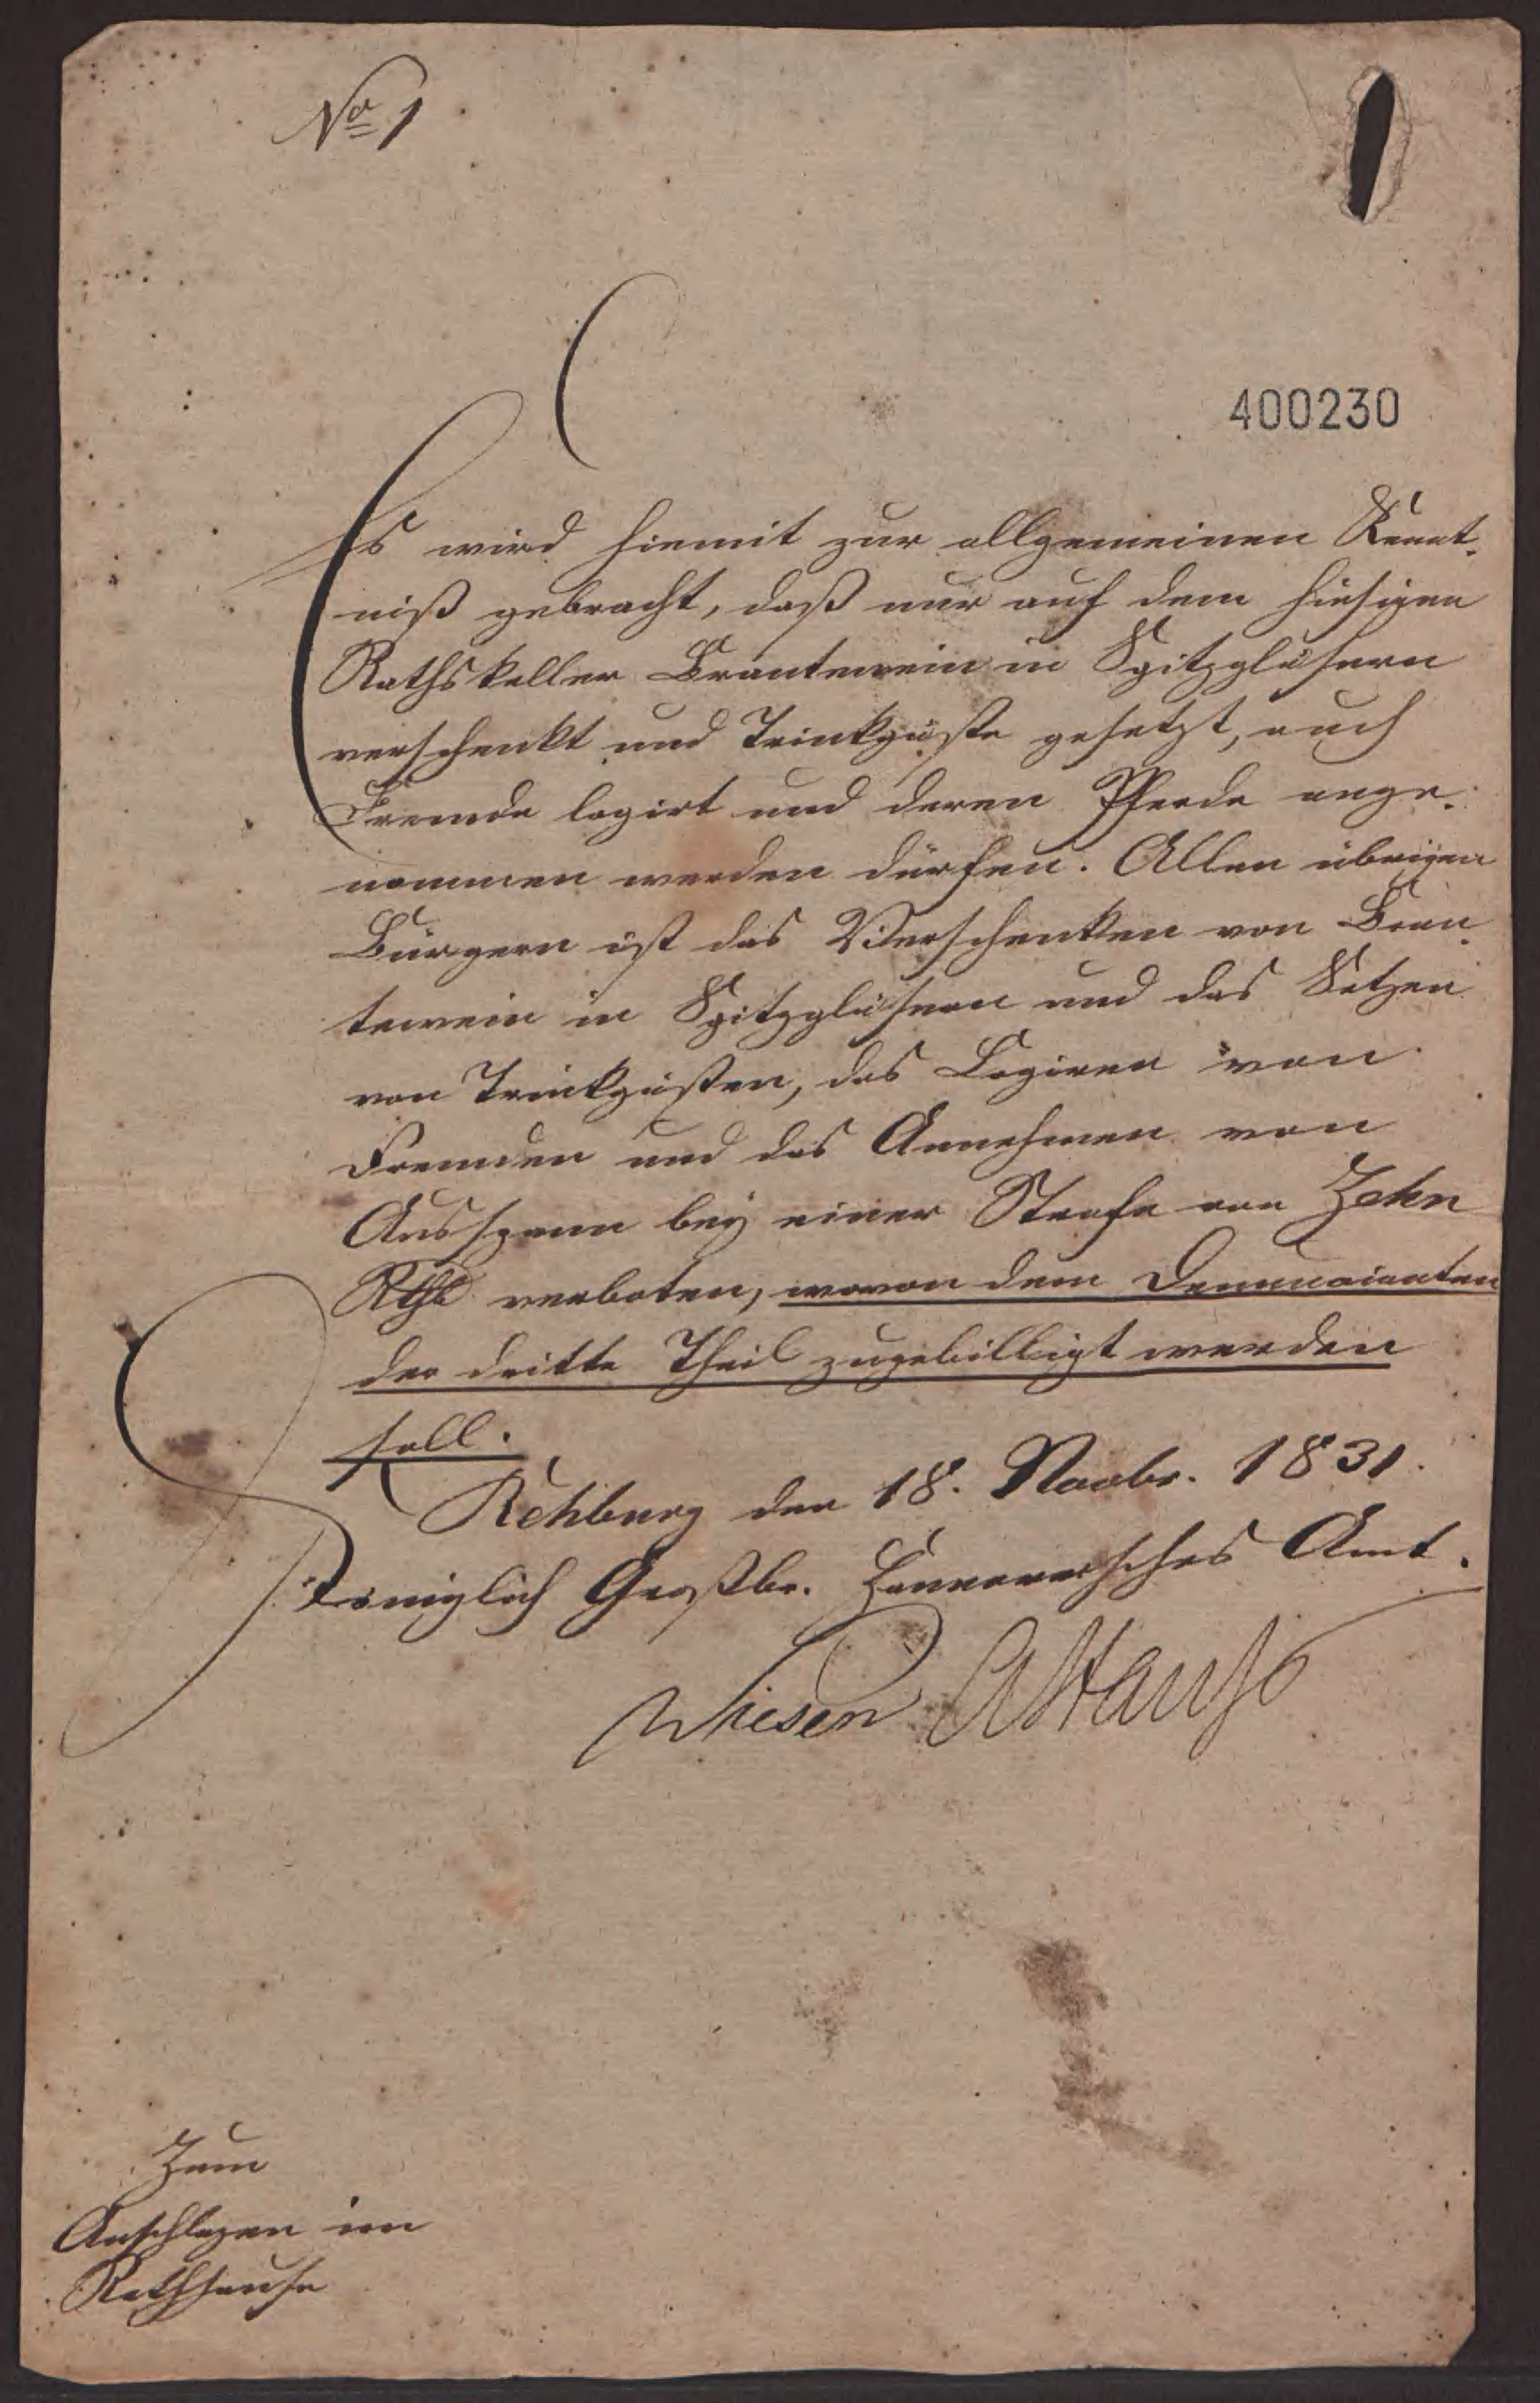 No 1
400230
Es wird hiemit zur allgemeinen Kennt-
niß gebracht, daß nur auf dem hiesigen
Rathskeller Brantewein in Spitzgläsern
verschenkt und Trinkgäste gesetzt, auch
Fremde logirt und deren Pferde ange-
nommen werden dürfen. Allen übrigen
Bürgern ist das Verschenken von Bran-
tewein in Spitzgläsern und das Setzen
von Trinkgästen, das Logiren von
Fremden und das Annehmen von
Ausspann bey einer Strafe von Zehn
Rthl verboten, wovon dem Denuncianten
der dritte Theil zugebilligt werden
soll.
Rehburg den 18. Novbr. 1831.
Königlich Großbr. Hannoversches Amt.
Wiesen
Zum
Anschlagen im
Rathhause